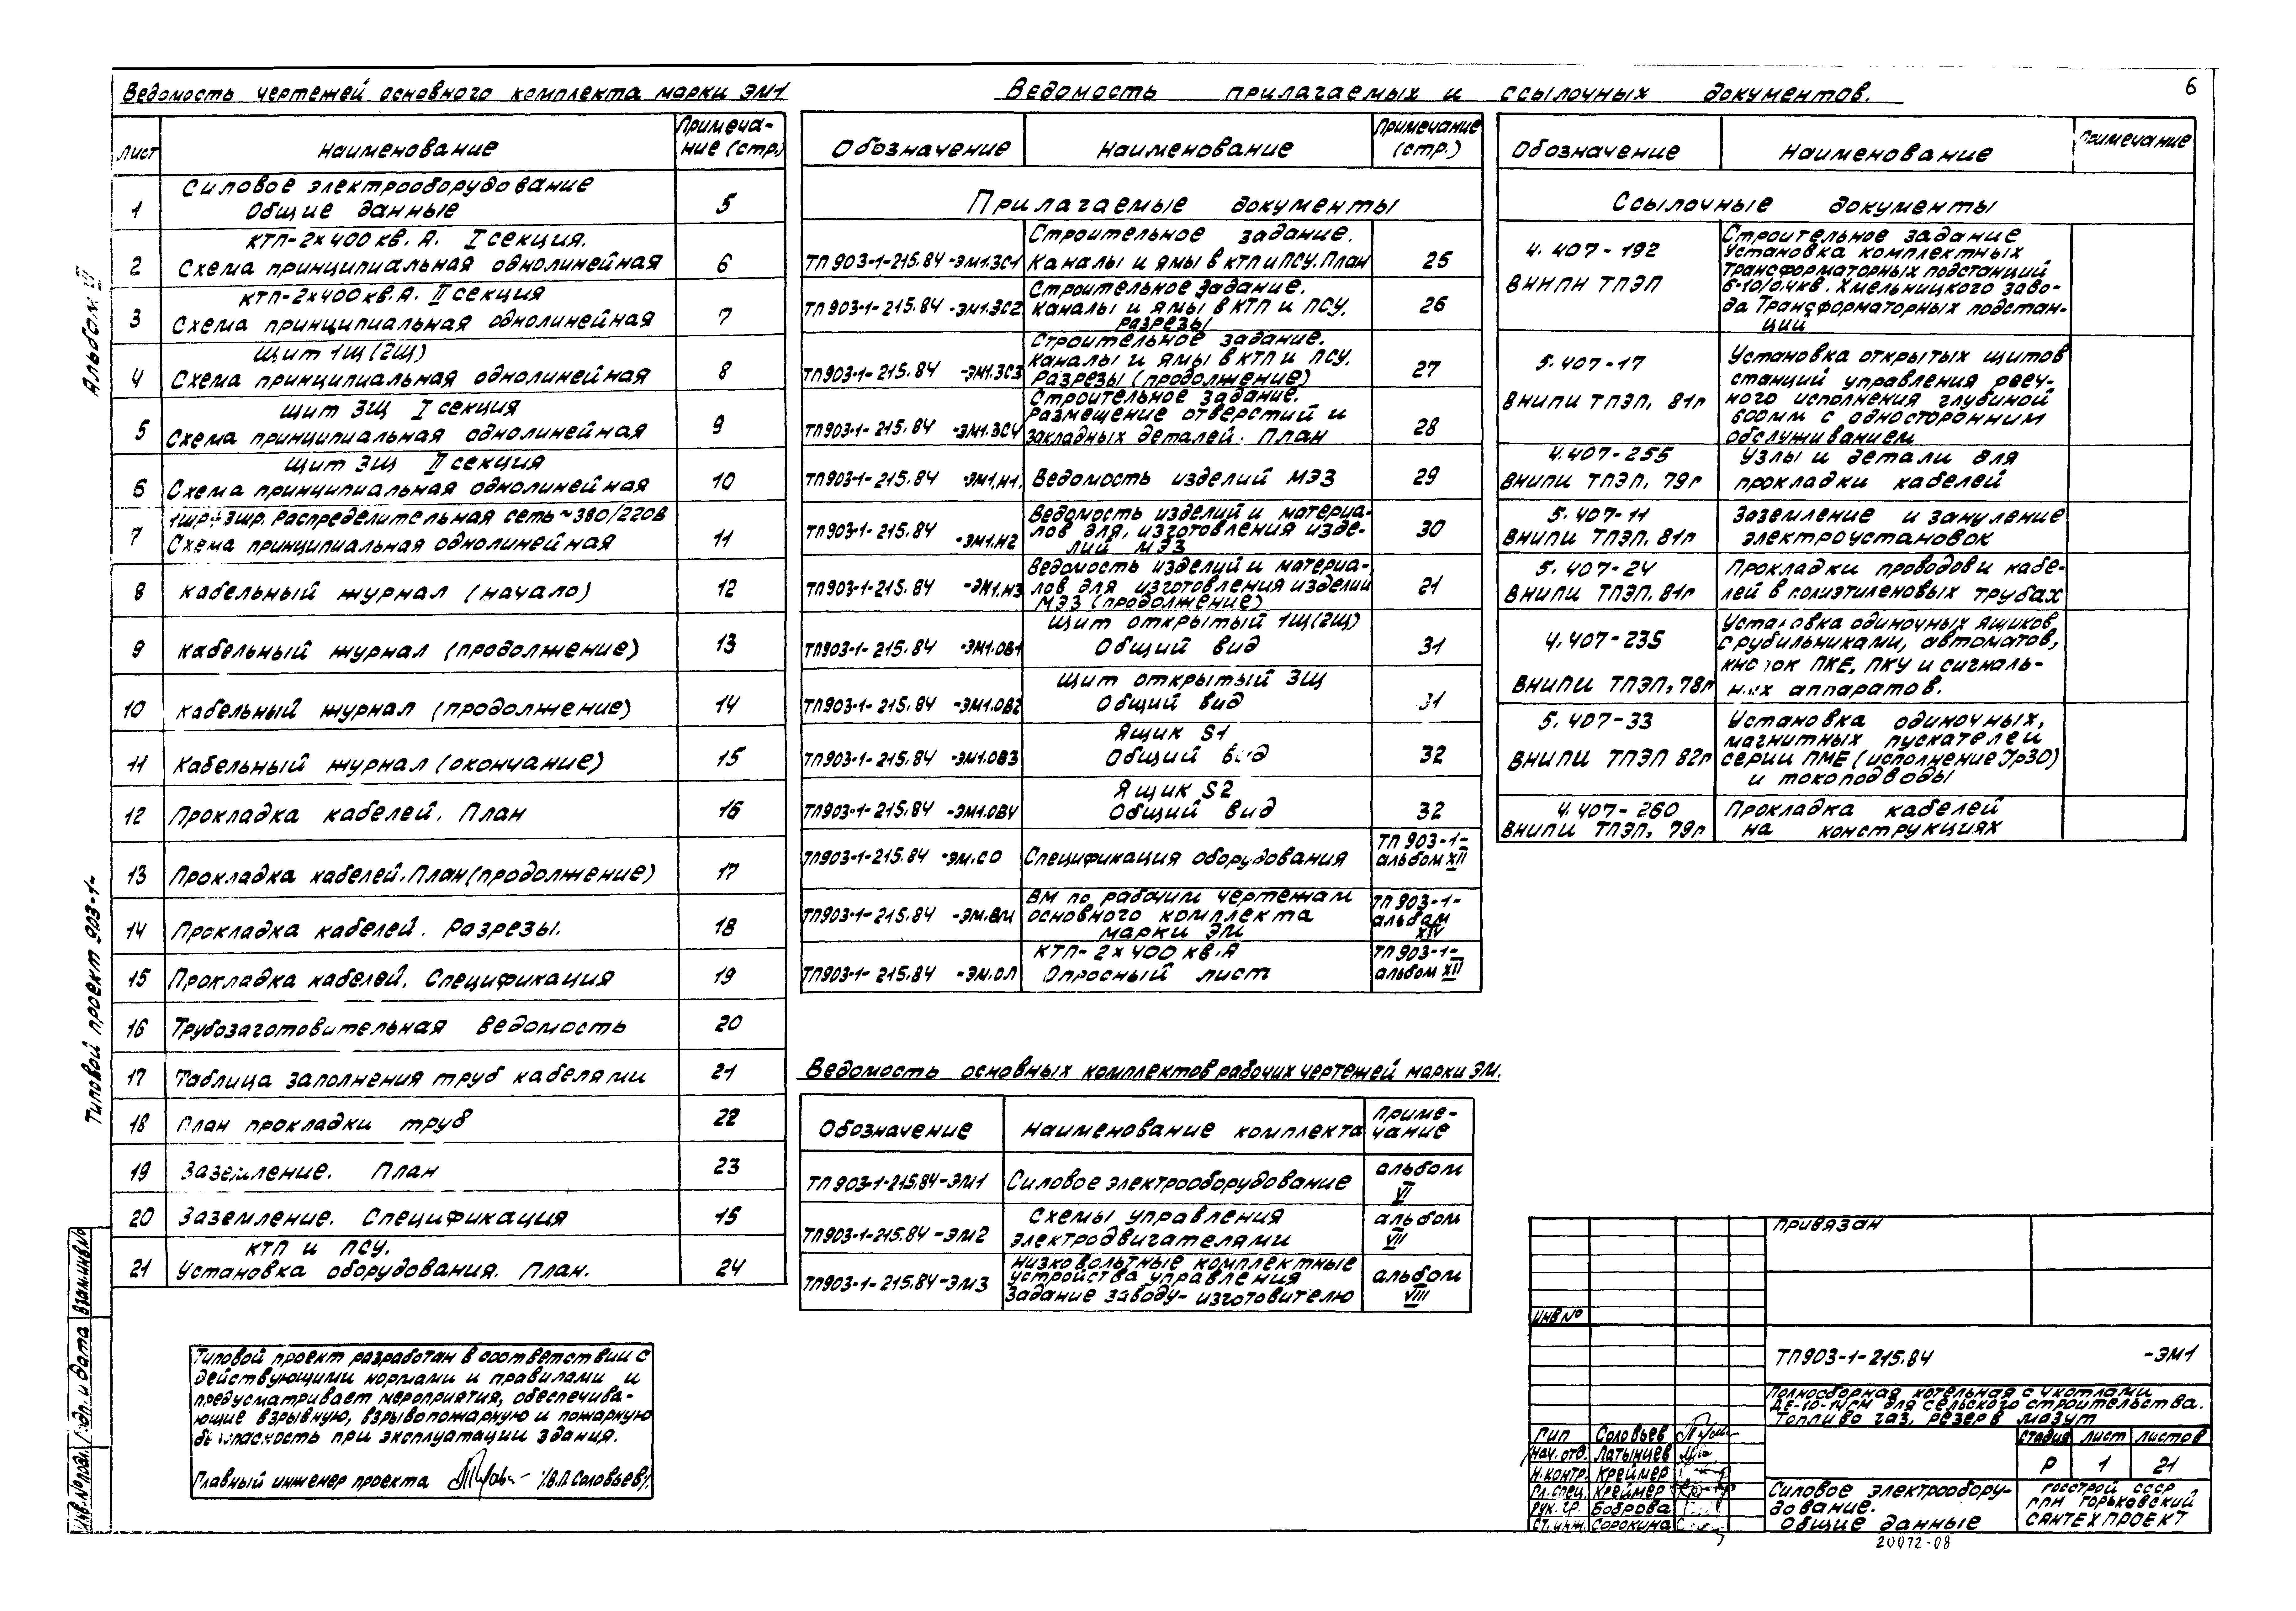 6
Ведомость чертежей основного комплекта марки ЭМ1
Лист Наименование Примеча-
ние (стр.)
1 Силовое электрооборудование
Общие данные 5
КТП-2×400 кв.А. I секция.
2 Схема принципиальная однолинейная 6
КТП-2×400 кв.А. II секция
3 Схема принципиальная однолинейная 7
Щит 1Щ (2Щ)
4 Схема принципиальная однолинейная 8
Щит 3Щ I секция
5 Схема принципиальная однолинейная 9
Щит 3Щ II секция
6 Схема принципиальная однолинейная 10
1шр÷3шр. Распределительная сеть ~380/220В
7 Схема принципиальная однолинейная 11
8 Кабельный журнал (начало) 12
9 Кабельный журнал (продолжение) 13
10 Кабельный журнал (продолжение) 14
11 Кабельный журнал (окончание) 15
12 Прокладка кабелей. План 16
13 Прокладка кабелей. План (продолжение) 17
14 Прокладка кабелей. Разрезы. 18
15 Прокладка кабелей. Спецификация 19
16 Трубозаготовительная ведомость 20
17 Таблица заполнения труб кабелями 21
18 План прокладки труб 22
19 Заземление. План 23
20 Заземление. Спецификация 15
КТП и ПСУ.
21 Установка оборудования. План. 24
Типовой проект разработан в соответствии с
действующими нормами и правилами и
предусматривает мероприятия, обеспечива-
ющие взрывную, взрывопожарную и пожарную
безопасность при эксплуатации здания.
Главный инженер проекта /В.П. Соловьев/
Ведомость прилагаемых и ссылочных документов.
Обозначение Наименование Примечание
(стр.)
Прилагаемые документы
Строительное задание.
ТП 903-1-215.84 -ЭМ1.ЗС1 Каналы и ямы в КТП и ПСУ. План 25
Строительное задание.
ТП 903-1-215.84 -ЭМ1.ЗС2 Каналы и ямы в КТП и ПСУ. 26
Разрезы
Строительное задание.
Каналы и ямы в КТП и ПСУ.
ТП903-1-215.84 -ЭМ1.ЗС3 Разрезы (продолжение) 27
Строительное задание.
Размещение отверстий и
ТП903-1-215.84 -ЭМ1.ЗС4 закладных деталей. План 28
ТП903-1-215.84 -ЭМ1.И1. Ведомость изделий МЭЗ 29
Ведомость изделий и материа-
ТП903-1-215.84 -ЭМ1.И2 лов для, изготовления изде- 30
лий МЭЗ
Ведомость изделий и материа-
ТП903-1-215.84 -ЭМ1.И3 лов для изготовления изделий 21
МЭЗ (продолжение)
Щит открытый 1Щ(2Щ)
ТП903-1-215.84 -ЭМ1.ОВ1 Общий вид 31
Щит открытый 3Щ
ТП903-1-215.84 -ЭМ1.ОВ2 Общий вид 31
Ящик S1
ТП903-1-215.84 -ЭМ1.ОВ3 Общий вид 32
Ящик S2
ТП903-1-215.84 -ЭМ1.ОВ4 Общий вид 32
ТП903-1-215.84 -ЭМ.СО Спецификация оборудования ТП 903-1-
альбом XII
ВМ по рабочим чертежам ТП 903-1-
ТП903-1-215.84 -ЭМ.ВМ основного комплекта альбом
марки ЭМ XIV
КТП-2×400 кв.А ТП 903-1-
ТП903-1-215.84 -ЭМ.ОЛ Опросный лист альбом XII
Ведомость основных комплектов рабочих чертежей марки ЭМ.
Обозначение Наименование комплекта Приме-
чание
ТП 903-1-215.84-ЭМ1 Силовое электрооборудование альбом
VI
ТП903-1-215.84-ЭМ2 Схемы управления альбом
электродвигателями VII
Низковольтные комплектные
ТП903-1-215.84-ЭМ3 устройства управления альбом
Задание заводу-изготовителю VIII
Обозначение Наименование Примечание
Ссылочные документы
4.407-192 Строительное задание
Установка комплектных
ВНИПИ ТПЭП Трансформаторных подстанций
6-10/0.4кв. Хмельницкого заво-
да Трансформаторных подстан-
ций
5.407-17 Установка открытых щитов
станций управления рееч-
ВНИПИ ТПЭП, 81г ного исполнения глубиной
600мм с односторонним
обслуживанием
4.407-255 Узлы и детали для
ВНИПИ ТПЭП, 79г прокладки кабелей
5.407-11 Заземление и зануление
ВНИПИ ТПЭП, 81г электроустановок
5.407-24 Прокладки проводов и кабе-
ВНИПИ ТПЭП, 81г лей в полиэтиленовых трубах
Установка одиночных ящиков,
4.407-235 с рубильниками, автоматов,
кнопок ПКЕ, ПКУ и сигналь-
ВНИПИ ТПЭП, 78г ных аппаратов.
5.407-33 Установка одиночных,
магнитных пускателей
ВНИПИ ТПЭП 82г серии ПМЕ (исполнение Jр30)
и токоподводы
4.407-260 Прокладка кабелей
ВНИПИ ТПЭП, 79г на конструкциях
Привязан
ИНВ №
ТП903-1-215.84 -ЭМ1
Полносборная котельная с 4 котлами
ДЕ-10-14ГМ для сельского строительства.
Топливо газ, резерв мазут
Стадия Лист Листов
Р 1 21
ГИП Соловьев
Нач. отд. Латынцев
Н.контр. Креймер
Гл.спец. Креймер
Рук. гр. Боброва
Ст. инж. Сорокина
Силовое электрообору-
дование.
Общие данные
Госстрой СССР
ГПИ Горьковский
Сантехпроект
20072-08
Альбом VI
Типовой проект 903-1-
Взам. инв №
Подп. и дата
Инв. № подл.